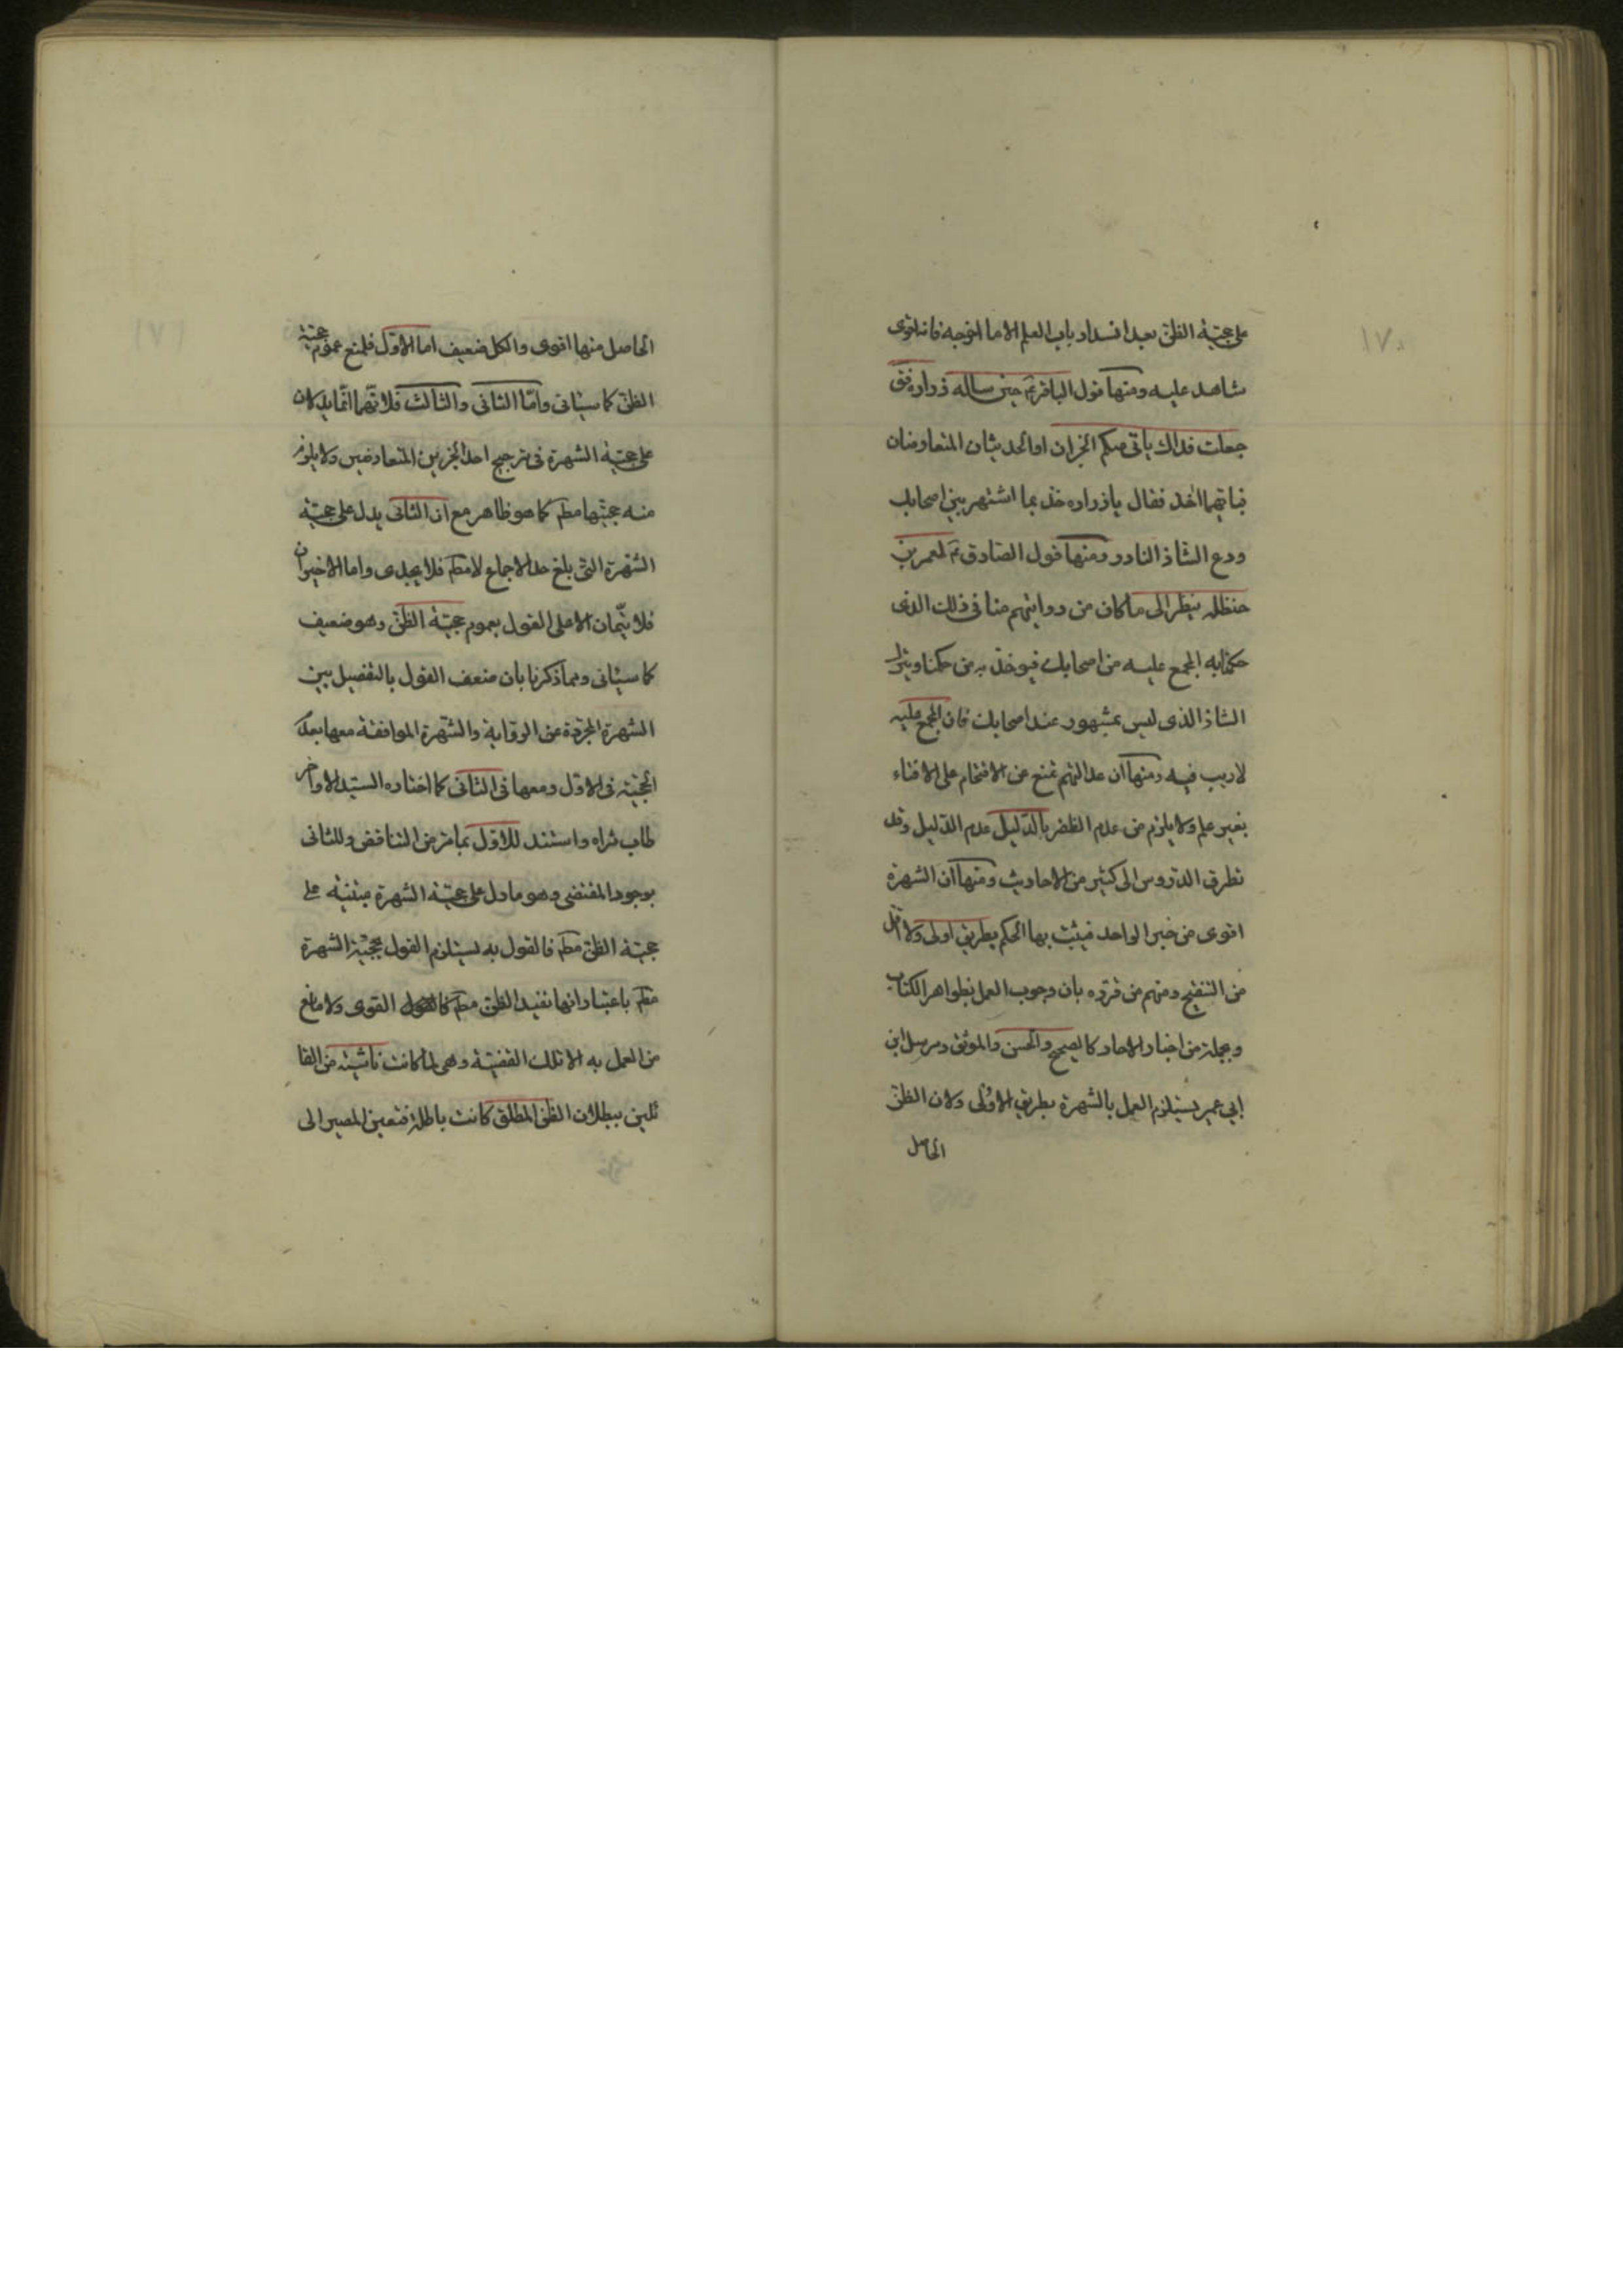 ١٧٠
على حجيّة الظنّ بعد انسداد باب العلم الا ما اخرجه فانه اقوى
شاهد عليه ومنها قول الباقر ع حين ساله زراره فق
جعلت فداك ياتى منكم الخبران او الحديثان المتعارضان
فبايهما اخذ فقال يا زراره خذ بما اشتهر بين اصحابك
ودع الشاذ النادر ومنها قول الصادق ع لعمر بن
حنظله ينظر الى ما كان من روايتهم منا فى ذلك الذى
حكما به المجمع عليه من اصحابك فيوخذ به من حكمنا ويترك
الشاذ الذى ليس بمشهور عند اصحابك فان المجمع عليه
لاريب فيه ومنها ان عدالتهم تمنع من الاقتحام على الافتاء
بغير علم ولا يلزم من عدم الظفر بالدّليل عدم الدّليل وقد
تطرق الدّروس الى كثير من الاحاديث ومنها ان الشهرة
اقوى من خبر الواحد فيثبت بها الحكم بطريق اولى ولا اقل
من التنقيح ومنهم من قرّره بان وجوب العمل بظواهر الكتاب
وبجملة من اخبار الاحاد كالصحيح والحسن والموثق ومرسل ابن
ابي عمير يستلزم العمل بالشهرة بطريق الاولى ولان الظنّ
الحاصل
(١٧)
الحاصل منها اقوى والكل ضعيف اما الاوّل فلمنع عموم حجيّة
الظنّ كما سياتى وامّا الثانى والثالث فلانّهما انّما يدلان
على حجيّة الشهرة فى ترجيح احد الخبرين المتعارضين ولا يلزم
منه حجيّتها مط كما هو ظاهر مع ان الثانى يدل على حجيّة
الشّهرة التى بلغ حد الاجماع لا مط فلا يجدى واما الاخيران
فلا يتمّان الا على القول بعموم حجيّة الظنّ وهو ضعيف
كما سياتى وبما ذكرنا بان ضعف القول بالتفصيل بين
الشهرة المجرّدة عن الروّاية والشّهرة الموافقة معها بعدم
الحجيّة فى الاوّل ومعها فى الثانى كما اختاره السيّد الاواخر
طاب ثراه واستند للاوّل بما مرّ من التناقض وللثانى
بوجود المقتضى وهو ما دل على حجيّة الشهرة مبتنية على
حجيّة الظنّ مط فالقول به يستلزم القول بحجيّة الشهرة
مط باعتبار انها تفيد الظنّ مط القوى ولا مانع
من العمل به الا تلك القضيّة وهى لما كانت ناشية من القا
ئلين ببطلان الظنّ المطلق كانت باطلة فتعين المصير الى